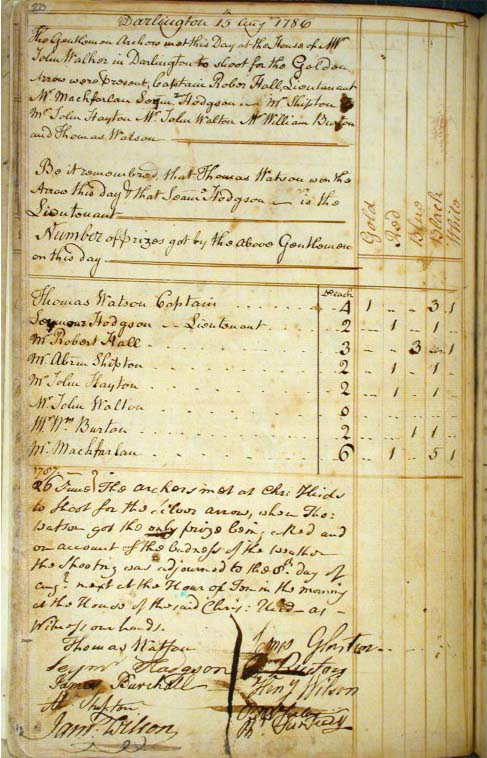 20
Darlington 15 Augt 1786
The Gentlemen Archers met this Day at the House of Mr
John Walker in Darlington to shoot for the Golden
Arrow were present, Captain Rober Hall, Lieutenant
Mr Mackfarlan Seymr Hodgson Mr Shipton
Mr John Hayton Mr John Walton Mr William Burton
and Thomas Watson
Be it remembred, that Thomas Watson won the
Arrow this day & that Seamr Hodgson is the
Lieutenant
Number of prizes got by the above Gentlemen
on this day
Gold Red Blue Black White
Each
Thomas Watson Captain 4 1 .. .. 3 1
Seymour Hodgson Lieutenant 2 .. 1 .. 1
Mr Robert Hall 3 .. .. 3 .. 1
Mr Abrm Shipton 2 .. 1 .. 1
Mr John Hayton 2 .. 1 .. 1
Mr John Walton 0
Mr Wm Burton 2 .. .. 1 1
Mr Mackfarlan 6 .. 1 .. 5 1
1787
26 June The archers met at Chrs
to shoot for the silver arrow, when Tho:
Watson got the only prize being a Red and
on account of the badness of the weather
the shooting was adjourned to the 8th day of
Augt next at the Hour of Ten in the morning
at the House of the said Chrisr: as
Witness our hands.
Thomas Watson
Seymr Hodgson
James
Ab Shipton
Jams Wilson
Heny Wilson